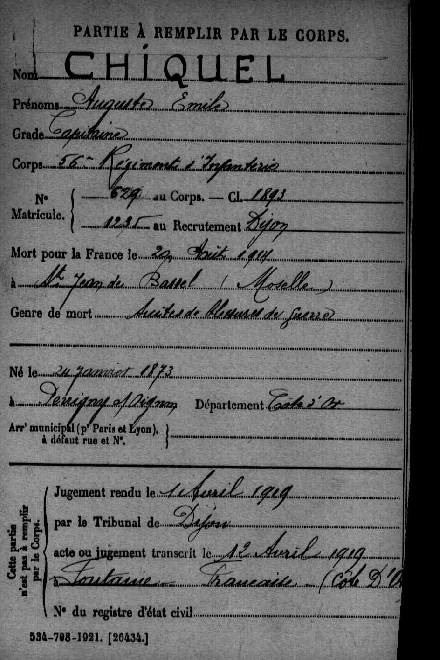 PARTIE À REMPLIR PAR LE CORPS.
Nom CHIQUEL
Prénoms Auguste Emile
Grade Capitaine
Corps 56me Régiment d'Infanterie
N° Matricule. { 529 au Corps. — Cl. 1893
1225 au Recrutement Dijon
Mort pour la France le Août 1914
à St Jean de Bassel (Moselle)
Genre de mort Suites de blessures de guerre
Né le 24 janvier 1873
à Département Côte d'Or
Arrt municipal (pr Paris et Lyon), à défaut rue et N°. }
Cette partie n'est pas à remplir par le Corps.
Jugement rendu le 1 Avril 1919
par le Tribunal de Dijon
acte ou jugement transcrit le 12 Avril 1919
à Fontaine Française (Côte D'Or
N° du registre d'état civil
534-708-1921. [26434.]